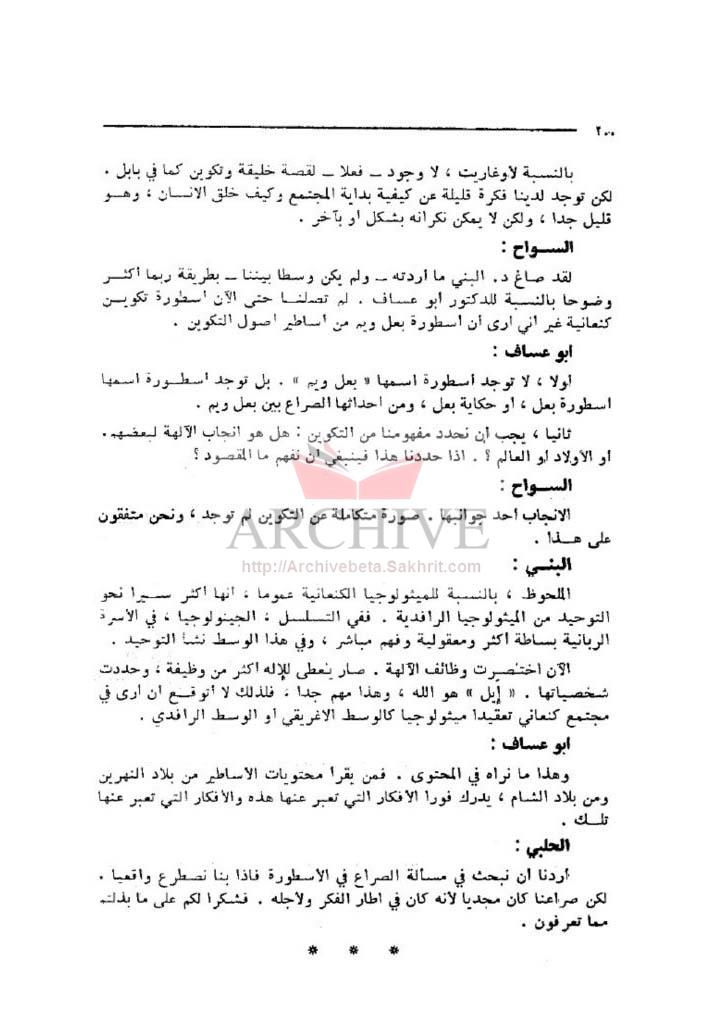 بالنسبة لأوغاريت ، لا وجود ــ فعلا ــ لقصة خليقة وتكوين كما في بابل .
لكن توجد لدينا فكرة قليلة عن كيفية بداية المجتمع وكيف خلق الانسان ، وهــو
قليل جدا ، ولكن لا يمكن نكرانه بشكل او بآخر .
الســواح :
لقد صاغ د. البني ما أردته ــ ولم يكن وسطا بيننا ــ بطريقة ربما أكثــر
وضوحا بالنسبة للدكتور أبو عساف . لم تصلنــا حتى الآن اسطورة تكويــن
كنعانية غير أني ارى ان اسطورة بعل ويم من أساطير اصول التكوين .
ابو عساف :
اولا ، لا توجد أسطورة اسمها « بعل ويم » . بل توجد اسطــورة اسمها
اسطورة بعل ، او حكاية بعل ، ومن احداثها الصراع بين بعل ويم .
ثانيا ، يجب ان نحدد مفهومنا من التكوين : هل هو انجاب الآلهة لبعضهم.
او الأولاد او العالم ؟ . اذا حددنا هذا فينبغي ان نفهم ما المقصود ؟
الســواح :
الانجاب احد جوانبها . صورة متكاملة عن التكوين لم توجد ، ونحن متفقون
على هــذا .
ARCHIVE
http://Archivebeta.Sakhrit.com
البنــي :
الملحوظ ، بالنسبة للميثولوجيا الكنعانية عموما ، انها اكثر ســيرا نحو
التوحيد من الميثولوجيا الرافدية . ففي التسلسل ، الجينولوجيا ، في الأسرة
الربانية بساطة أكثر ومعقولية وفهم مباشر ، وفي هذا الوسط نشأ التوحيد .
الآن اختصرت وظائف الآلهة . صار يعطى للإله اكثر من وظيفة ، وحددت
شخصياتها . « إيل » هو الله ، وهذا مهم جدا ، فلذلك لا أتوقــع ان ارى في
مجتمع كنعاني تعقيدا ميثولوجيا كالوسط الاغريقي او الوسط الرافدي .
ابو عساف :
وهذا ما نراه في المحتوى . فمن يقرأ محتويات الأساطير من بلاد النهرين
ومن بلاد الشام ، يدرك فورا الأفكار التي تعبر عنها هذه والأفكار التي تعبر عنها
تلــك .
الحلبي :
أردنا ان نبحث في مسألة الصراع في الأسطورة فاذا بنا نصطرع واقعيا .
لكن صراعنا كان مجديا لأنه كان في اطار الفكر ولأجله . فشكرا لكم على ما بذلتم
مما تعرفون .
* * *